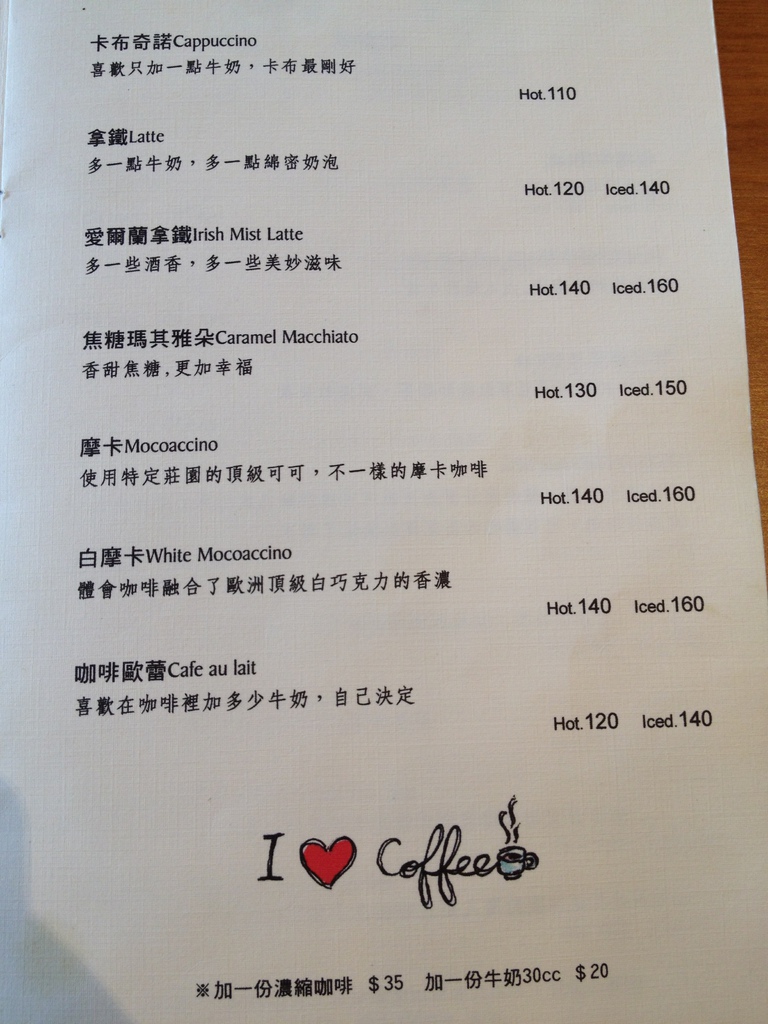 卡布奇諾Cappuccino
喜歡只加一點牛奶，卡布最剛好
Hot.110
拿鐵Latte
多一點牛奶，多一點綿密奶泡
Hot.120 Iced.140
愛爾蘭拿鐵Irish Mist Latte
多一些酒香，多一些美妙滋味
Hot.140 Iced.160
焦糖瑪其雅朵Caramel Macchiato
香甜焦糖,更加幸福
Hot.130 Iced.150
摩卡Mocoaccino
使用特定莊園的頂級可可，不一樣的摩卡咖啡
Hot.140 Iced.160
白摩卡White Mocoaccino
體會咖啡融合了歐洲頂級白巧克力的香濃
Hot.140 Iced.160
咖啡歐蕾Cafe au lait
喜歡在咖啡裡加多少牛奶，自己決定
Hot.120 Iced.140
I ❤ Coffee
※加一份濃縮咖啡 $35 加一份牛奶30cc $20